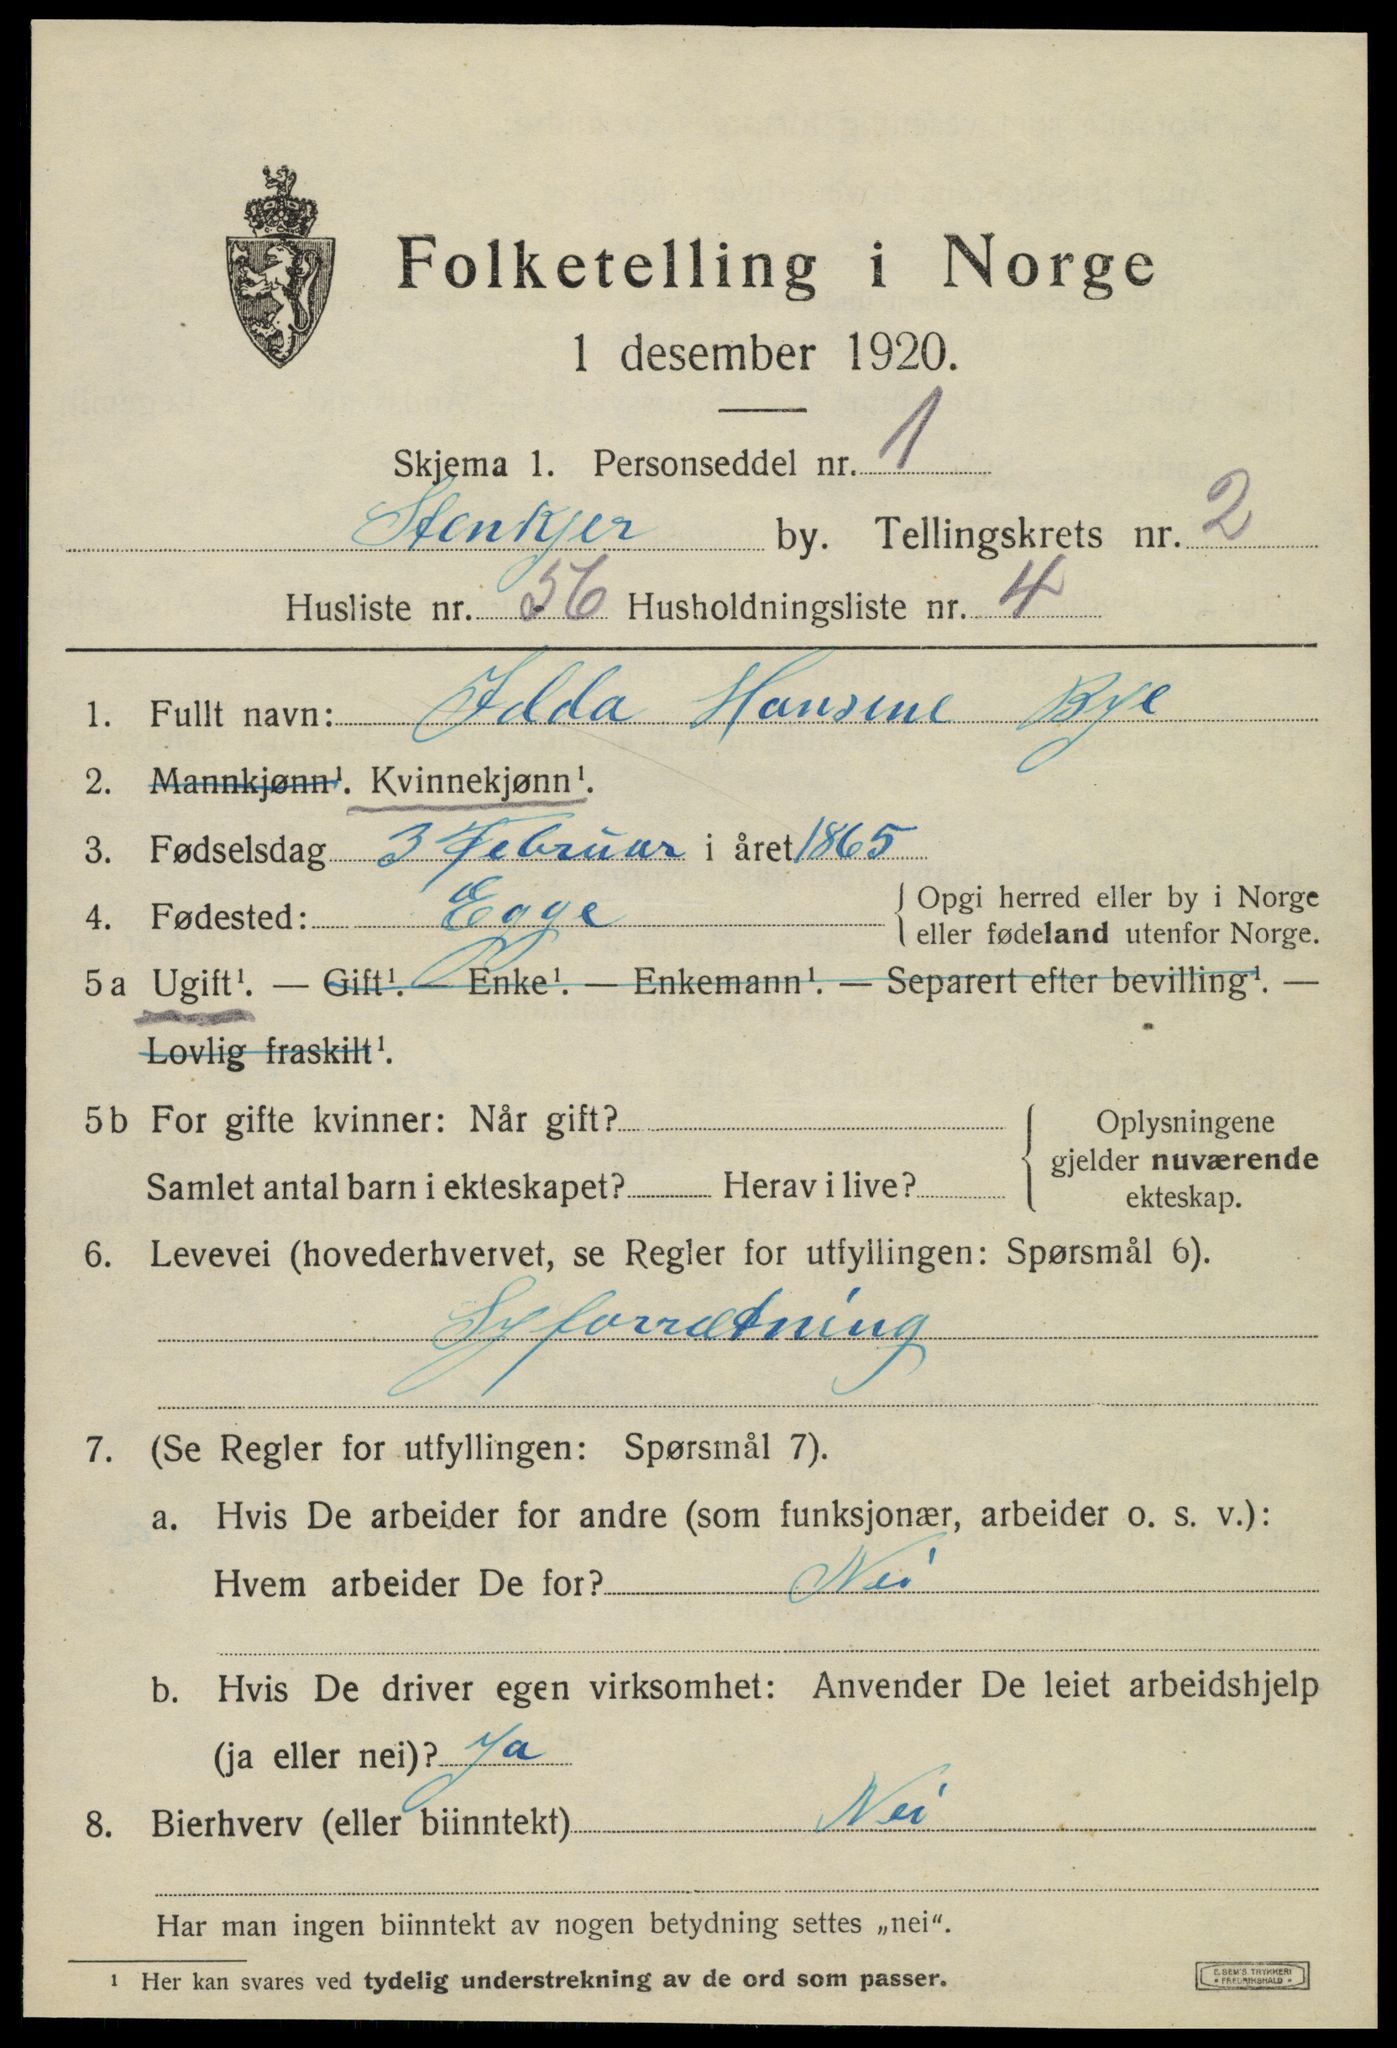 Folketelling i Norge
1 desember 1920.
Skjema 1. Personseddel nr. 1
Stenkjer by. Tellingskrets nr. 2
Husliste nr. 56 Husholdningsliste nr. 4
1. Fullt navn: Idda Hansine Bye
2. Mannkjønn¹. Kvinnekjønn¹.
3. Fødselsdag 3 Februar i året 1865
4. Fødested: Egge { Opgi herred eller by i Norge
eller fødeland utenfor Norge.
5 a Ugift¹. — Gift¹. — Enke¹. — Enkemann¹. — Separert efter bevilling¹. —
Lovlig fraskilt¹.
5 b For gifte kvinner: Når gift?
Samlet antal barn i ekteskapet? Herav i live?
Oplysningene
gjelder nuværende
ekteskap.
6. Levevei (hovederhvervet, se Regler for utfyllingen: Spørsmål 6).
Syforrætning
7. (Se Regler for utfyllingen: Spørsmål 7).
a. Hvis De arbeider for andre (som funksjonær, arbeider o. s. v.):
Hvem arbeider De for? Nei
b. Hvis De driver egen virksomhet: Anvender De leiet arbeidshjelp
(ja eller nei)? Ja
8. Bierhverv (eller biinntekt) Nei
Har man ingen biinntekt av nogen betydning settes „nei“.
¹ Her kan svares ved tydelig understrekning av de ord som passer.
E. SEM'S TRYKKERI
• FREDRIKSHALD •